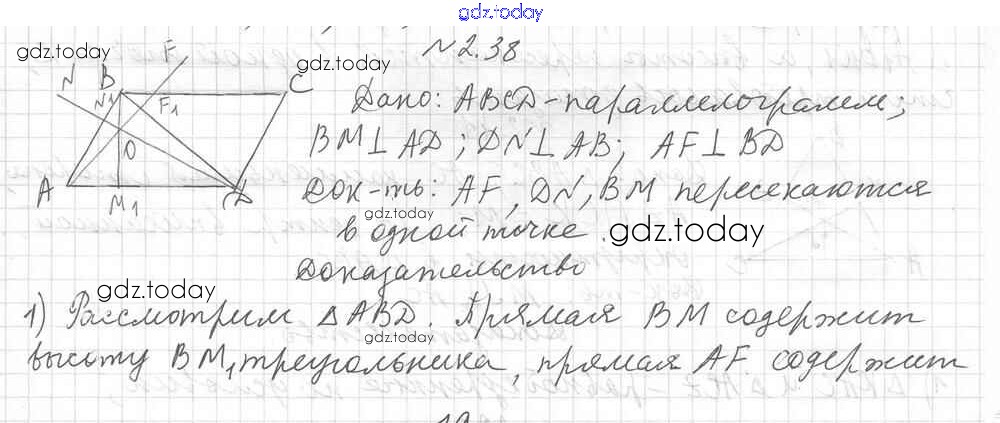 gdz.today
№2.38
gdz.today
gdz.today
F
N
B
N1
F1
C
O
A
M1
D
Дано: ABCD-параллелограмм;
BM⊥AD; DN⊥AB; AF⊥BD
Док-ть: AF, DN, BM пересекаются
gdz.today
в одной точке.
gdz.today
Доказательство
gdz.today
1) Рассмотрим △ABD. Прямая BM содержит
gdz.today
высоту BM1 треугольника, прямая AF содержит